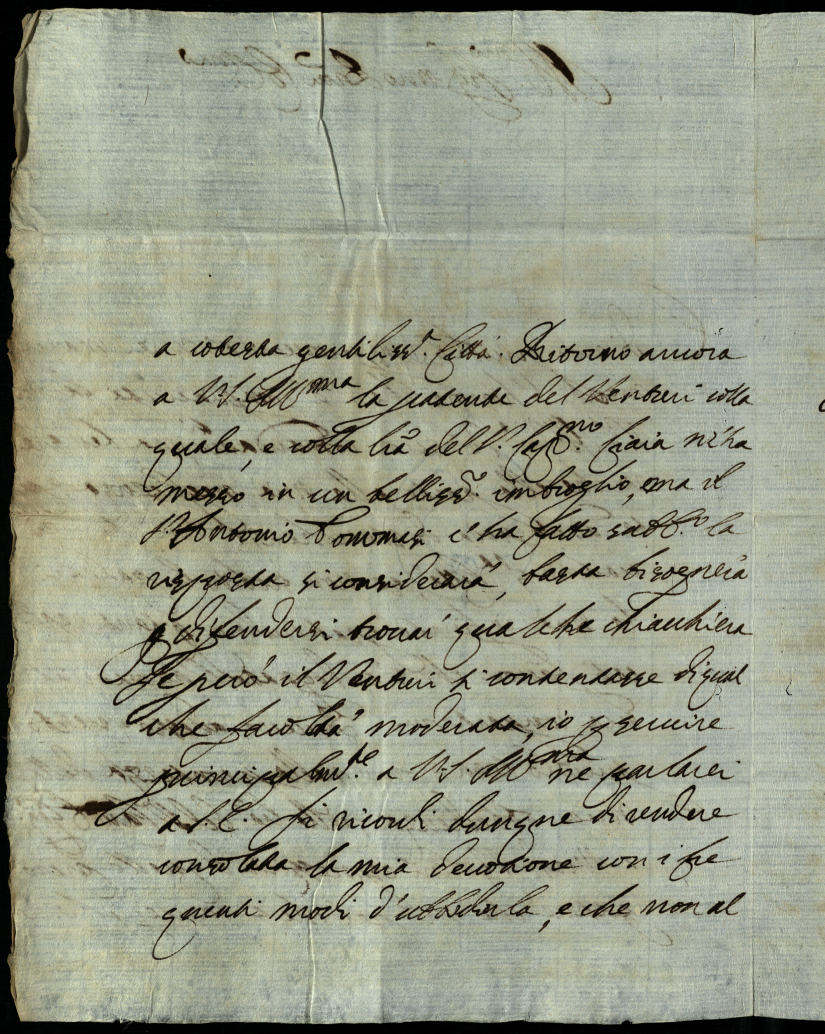 a cotesta gentiliss.ª Città. Ritorno ancora
a V.S. Ill.ma la patente del Venturi colla
quale, e colla lrã del S. Cap.no Ciaia m'ha
messo in un belliss.º imbroglio, ma il
S. Antonio Tommasi c'ha fatto la
risposta si considerarà, basta bisognerà
p difendersi trovar qualche chiacchiera
Se però il Venturi si contentasse di qual
che facoltà moderata, io p servire
principalm.te a V.S. Ill.ma ne parlarei
a S.E. Si ricordi dunque di rendere
consolata la mia devotione con i fre
quenti modi d'ubbidirla, e che non al